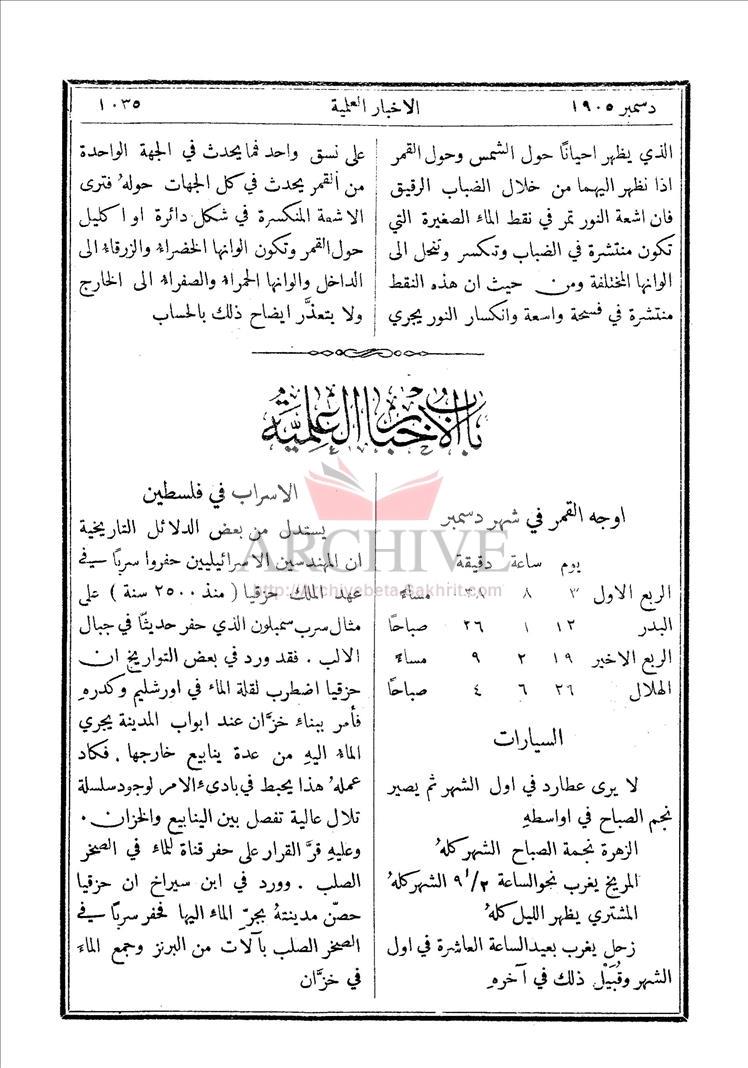 دسمبر ١٩٠٥
الاخبار العلمية
١٠٣٥
الذي يظهر احيانًا حول الشمس وحول القمر
اذا نظهر اليهما من خلال الضباب الرقيق
فان اشعة النور تمر في نقط الماء الصغيرة التي
تكون منتشرة في الضباب وتنكسر وتنحل الى
الوانها المختلفة ومن حيث ان هذه النقط
منتشرة في فسحة واسعة وانكسار النور يجري
على نسق واحد فما يحدث في الجهة الواحدة
من القمر يحدث في كل الجهات حولهُ فترى
الاشعة المنكسرة في شكل دائرة او اكليل
حول القمر وتكون الوانها الخضراء والزرقاء الى
الداخل والوانها الحمراء والصفراء الى الخارج
ولا يتعذَّر ايضاح ذلك بالحساب
باب الاخبار العلمية
اوجه القمر في شهر دسمبر
يوم ساعة دقيقة
الربع الاول ٣ ٨ مساءً
البدر ١٢ ١ ٢٦ صباحًا
الربع الاخير ١٩ ٢ ٩ مساءً
الهلال ٢٦ ٦ ٤ صباحًا
السيارات
لا يرى عطارد في اول الشهر ثم يصير
نجم الصباح في اواسطهِ
الزهرة نجمة الصباح الشهر كلهُ
المريخ يغرب نحو الساعة ٩ ١/٢ الشهر كلهُ
المشتري يظهر الليل كلهُ
زحل يغرب بعيد الساعة العاشرة في اول
الشهر وقُبَيْل ذلك في آخرهِ
الاسراب في فلسطين
يستدل من بعض الدلائل التاريخية
ان المهندسين الاسرائيليين حفروا سربًا في
عهد الملك حزقيا (منذ ٢٥٠٠ سنة) على
مثال سرب سمبلون الذي حفر حديثًا في جبال
الالب . فقد ورد في بعض التواريخ ان
حزقيا اضطرب لقلة الماء في اورشليم وكدرهِ
فأمر ببناء خزَّان عند ابواب المدينة يجري
الماءُ اليهِ من عدة ينابيع خارجها . فكاد
عملهُ هذا يحبط في بادىء الامر لوجود سلسلة
تلال عالية تفصل بين الينابيع والخزان .
وعليهِ قرَّ القرار على حفر قناة للماء في الصخر
الصلب . وورد في ابن سيراخ ان حزقيا
حصّن مدينتهُ بجرِّ الماء اليها فحفر سربًا في
الصخر الصلب بآلات من البرنز وجمع الماءَ
في خزَّان
ARCHIVE
http://Archivebeta.Sakhrit.com